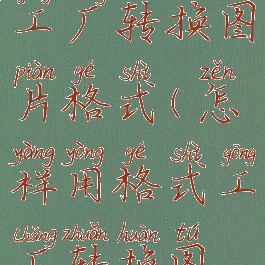 工厂转换图
piàn gé shì zěn
片格式(怎
yàng yòng gé shì gōng
样用格式工
chǎng zhuǎn huàn tú
厂转换图